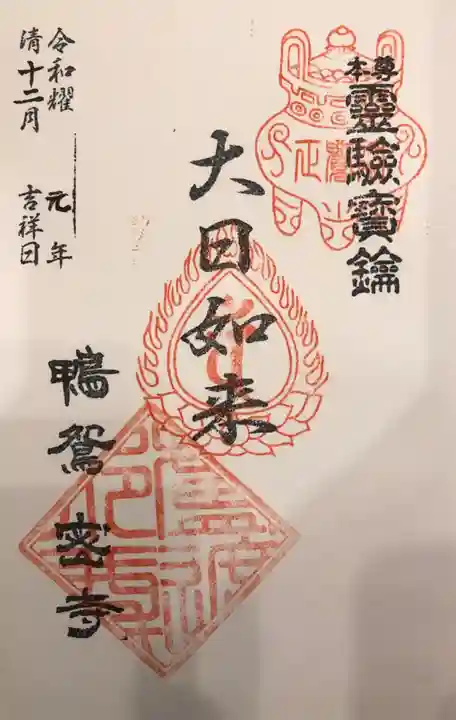 本尊
靈驗寶鑰
大日如来
鴨鴛密寺
令和耀 元年
清十二月 吉祥日